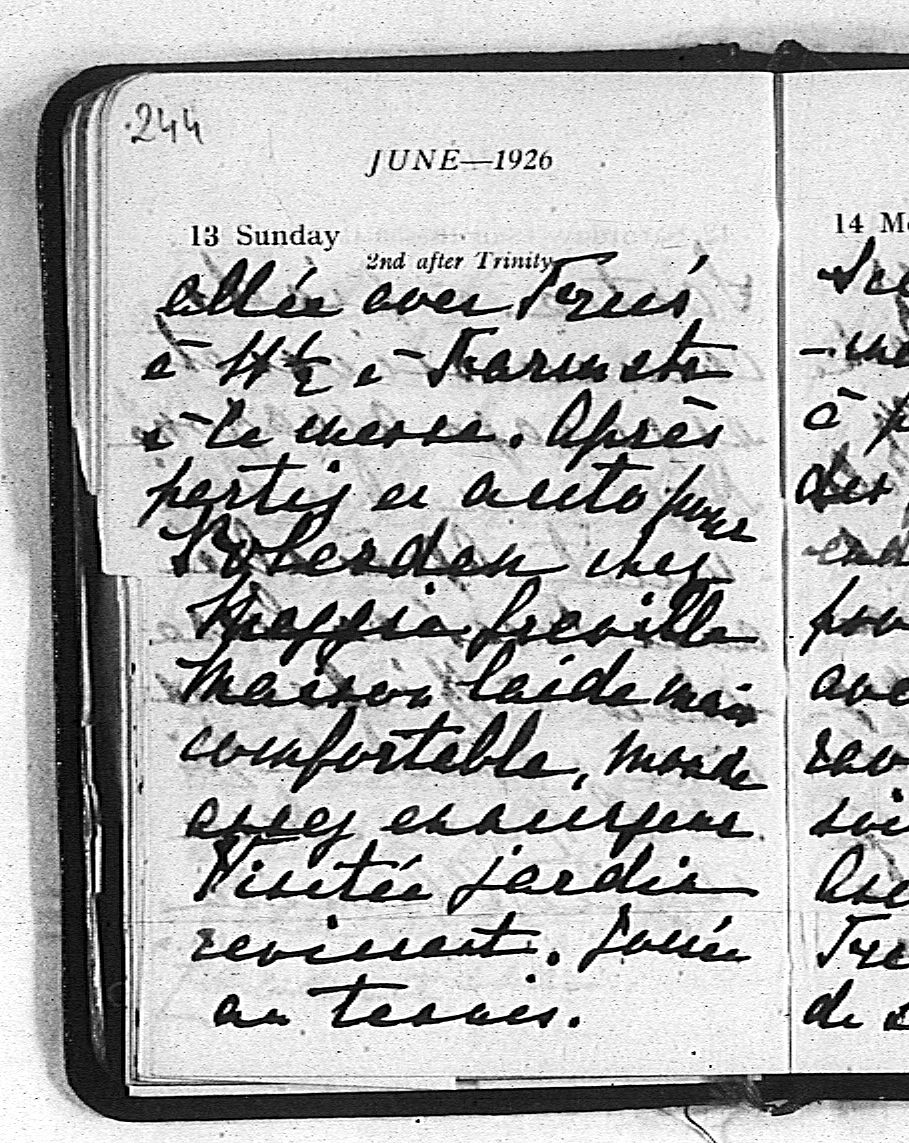 244
JUNE—1926
13 Sunday
2nd after Trinity
allée avec
à 11½ à Farm str
à la messe. Après
partis en auto pour
Polesden chez
Maggie Greville
Maison laide mais
comfortable, monde
assez ennuyeux
Visitée jardin
ravissant. Jouée
au tennis.
14 M
à p
des
pou
ave
de s